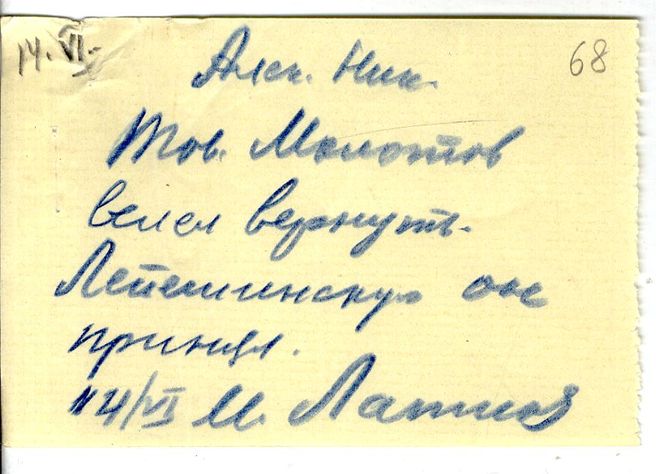 14.VI. 68
Алек. Ник.
Тов. Молотов
велел вернуть.
Лепешинскую он
принял.
14/VI М. Лапшов